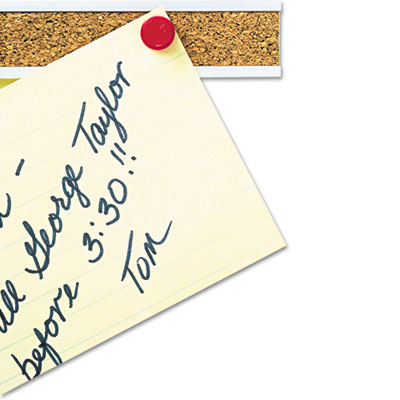 -
George Taylor
before 3:30!!
Tom